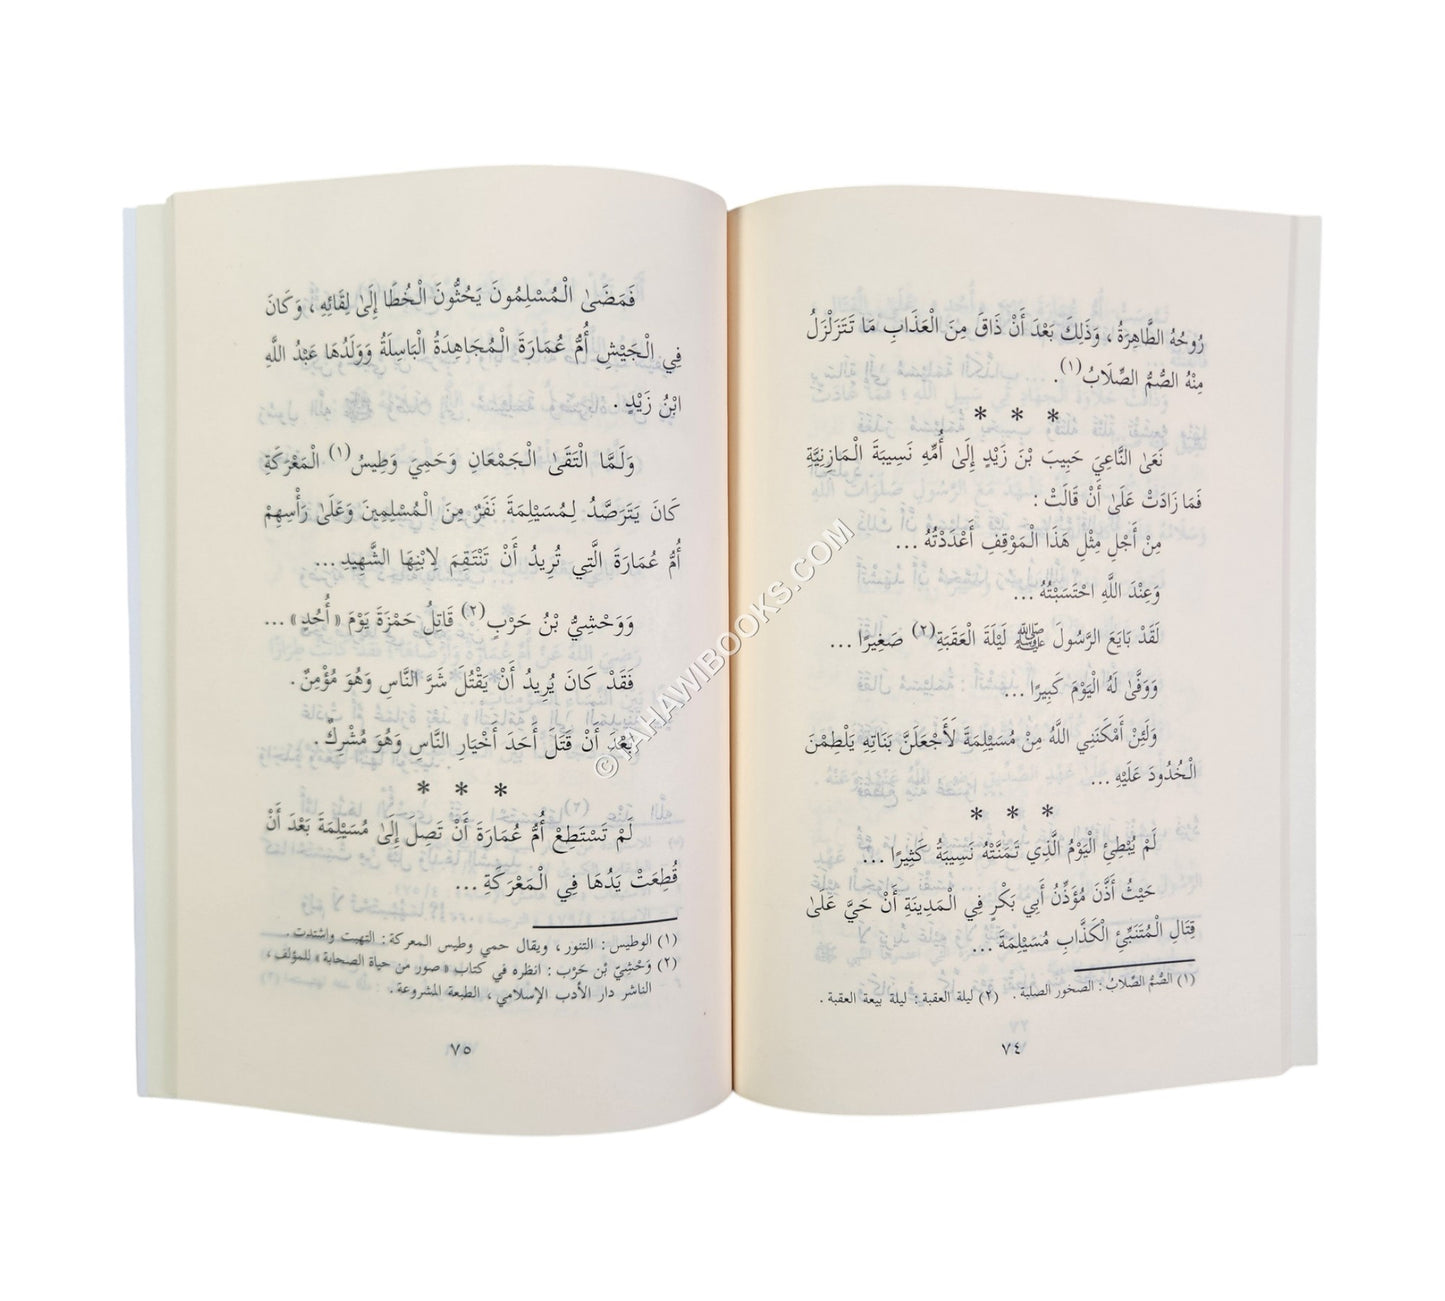 رُوحُهُ الطَّاهِرَةُ ، وَذَلِكَ بَعْدَ أَنْ ذَاقَ مِنَ الْعَذَابِ مَا تَتَزَلْزَلُ
مِنْهُ الصُّمُّ الصِّلَابُ(١).
* * *
نَعَىٰ النَّاعِيَ حَبِيبَ بْنَ زَيْدٍ إِلَىٰ أُمِّهِ نَسِيبَةَ الْمَازِنِيَّةِ
فَمَا زَادَتْ عَلَىٰ أَنْ قَالَتْ :
مِنْ أَجْلِ مِثْلِ هَذَا الْمَوْقِفِ أَعْدَدْتُهُ ...
وَعِنْدَ اللَّهِ احْتَسَبْتُهُ ...
لَقَدْ بَايَعَ الرَّسُولَ ﷺ لَيْلَةَ الْعَقَبَةِ(٢) صَغِيرًا ...
وَوَفَّىٰ لَهُ الْيَوْمَ كَبِيرًا ...
وَلَئِنْ أَمْكَنَنِي اللَّهُ مِنْ مُسَيْلِمَةَ لَأَجْعَلَنَّ بَنَاتِهِ يَلْطِمْنَ
الْخُدُودَ عَلَيْهِ ...
* * *
لَمْ يُبْطِئِ الْيَوْمُ الَّذِي تَمَنَّتْهُ نَسِيبَةُ كَثِيرًا ...
حَيْثُ أَذَّنَ مُؤَذِّنُ أَبِي بَكْرٍ فِي الْمَدِينَةِ أَنْ حَيَّ عَلَىٰ
قِتَالِ الْمُتَنَبِّئِ الْكَذَّابِ مُسَيْلِمَةَ ...
(١) الصُّمُّ الصِّلَابُ : الصخور الصلبة . (٢) ليلة العقبة : ليلة بيعة العقبة .
٧٤
فَمَضَىٰ الْمُسْلِمُونَ يَحُثُّونَ الْخُطَا إِلَىٰ لِقَائِهِ ، وَكَانَ
فِي الْجَيْشِ أُمُّ عُمَارَةَ الْمُجَاهِدَةُ الْبَاسِلَةُ وَوَلَدُهَا عَبْدُ اللَّهِ
ابْنُ زَيْدٍ .
وَلَمَّا الْتَقَىٰ الْجَمْعَانِ وَحَمِيَ وَطِيسُ(١) الْمَعْرَكَةِ
كَانَ يَتَرَصَّدُ لِمُسَيْلِمَةَ نَفَرٌ مِنَ الْمُسْلِمِينَ وَعَلَىٰ رَأْسِهِمْ
أُمُّ عُمَارَةَ الَّتِي تُرِيدُ أَنْ تَنْتَقِمَ لِابْنِهَا الشَّهِيدِ ...
وَوَحْشِيُّ بْنُ حَرْبٍ(٢) قَاتِلُ حَمْزَةَ يَوْمَ « أُحُدٍ » ...
فَقَدْ كَانَ يُرِيدُ أَنْ يَقْتُلَ شَرَّ النَّاسِ وَهُوَ مُؤْمِنٌ .
بَعْدَ أَنْ قَتَلَ أَحَدَ أَخْيَارِ النَّاسِ وَهُوَ مُشْرِكٌ .
* * *
لَمْ تَسْتَطِعْ أُمُّ عُمَارَةَ أَنْ تَصِلَ إِلَىٰ مُسَيْلِمَةَ بَعْدَ أَنْ
قُطِعَتْ يَدُهَا فِي الْمَعْرَكَةِ ...
(١) الوطيس : التنور ، ويقال حمي وطيس المعركة : التهبت واشتدت .
(٢) وَحْشِيّ بْن حَرْب : انظره في كتاب « صور من حياة الصحابة » للمؤلف ،
الناشر دار الأدب الإسلامي ، الطبعة المشروعة .
٧٥
© TAHAWIBOOKS.COM